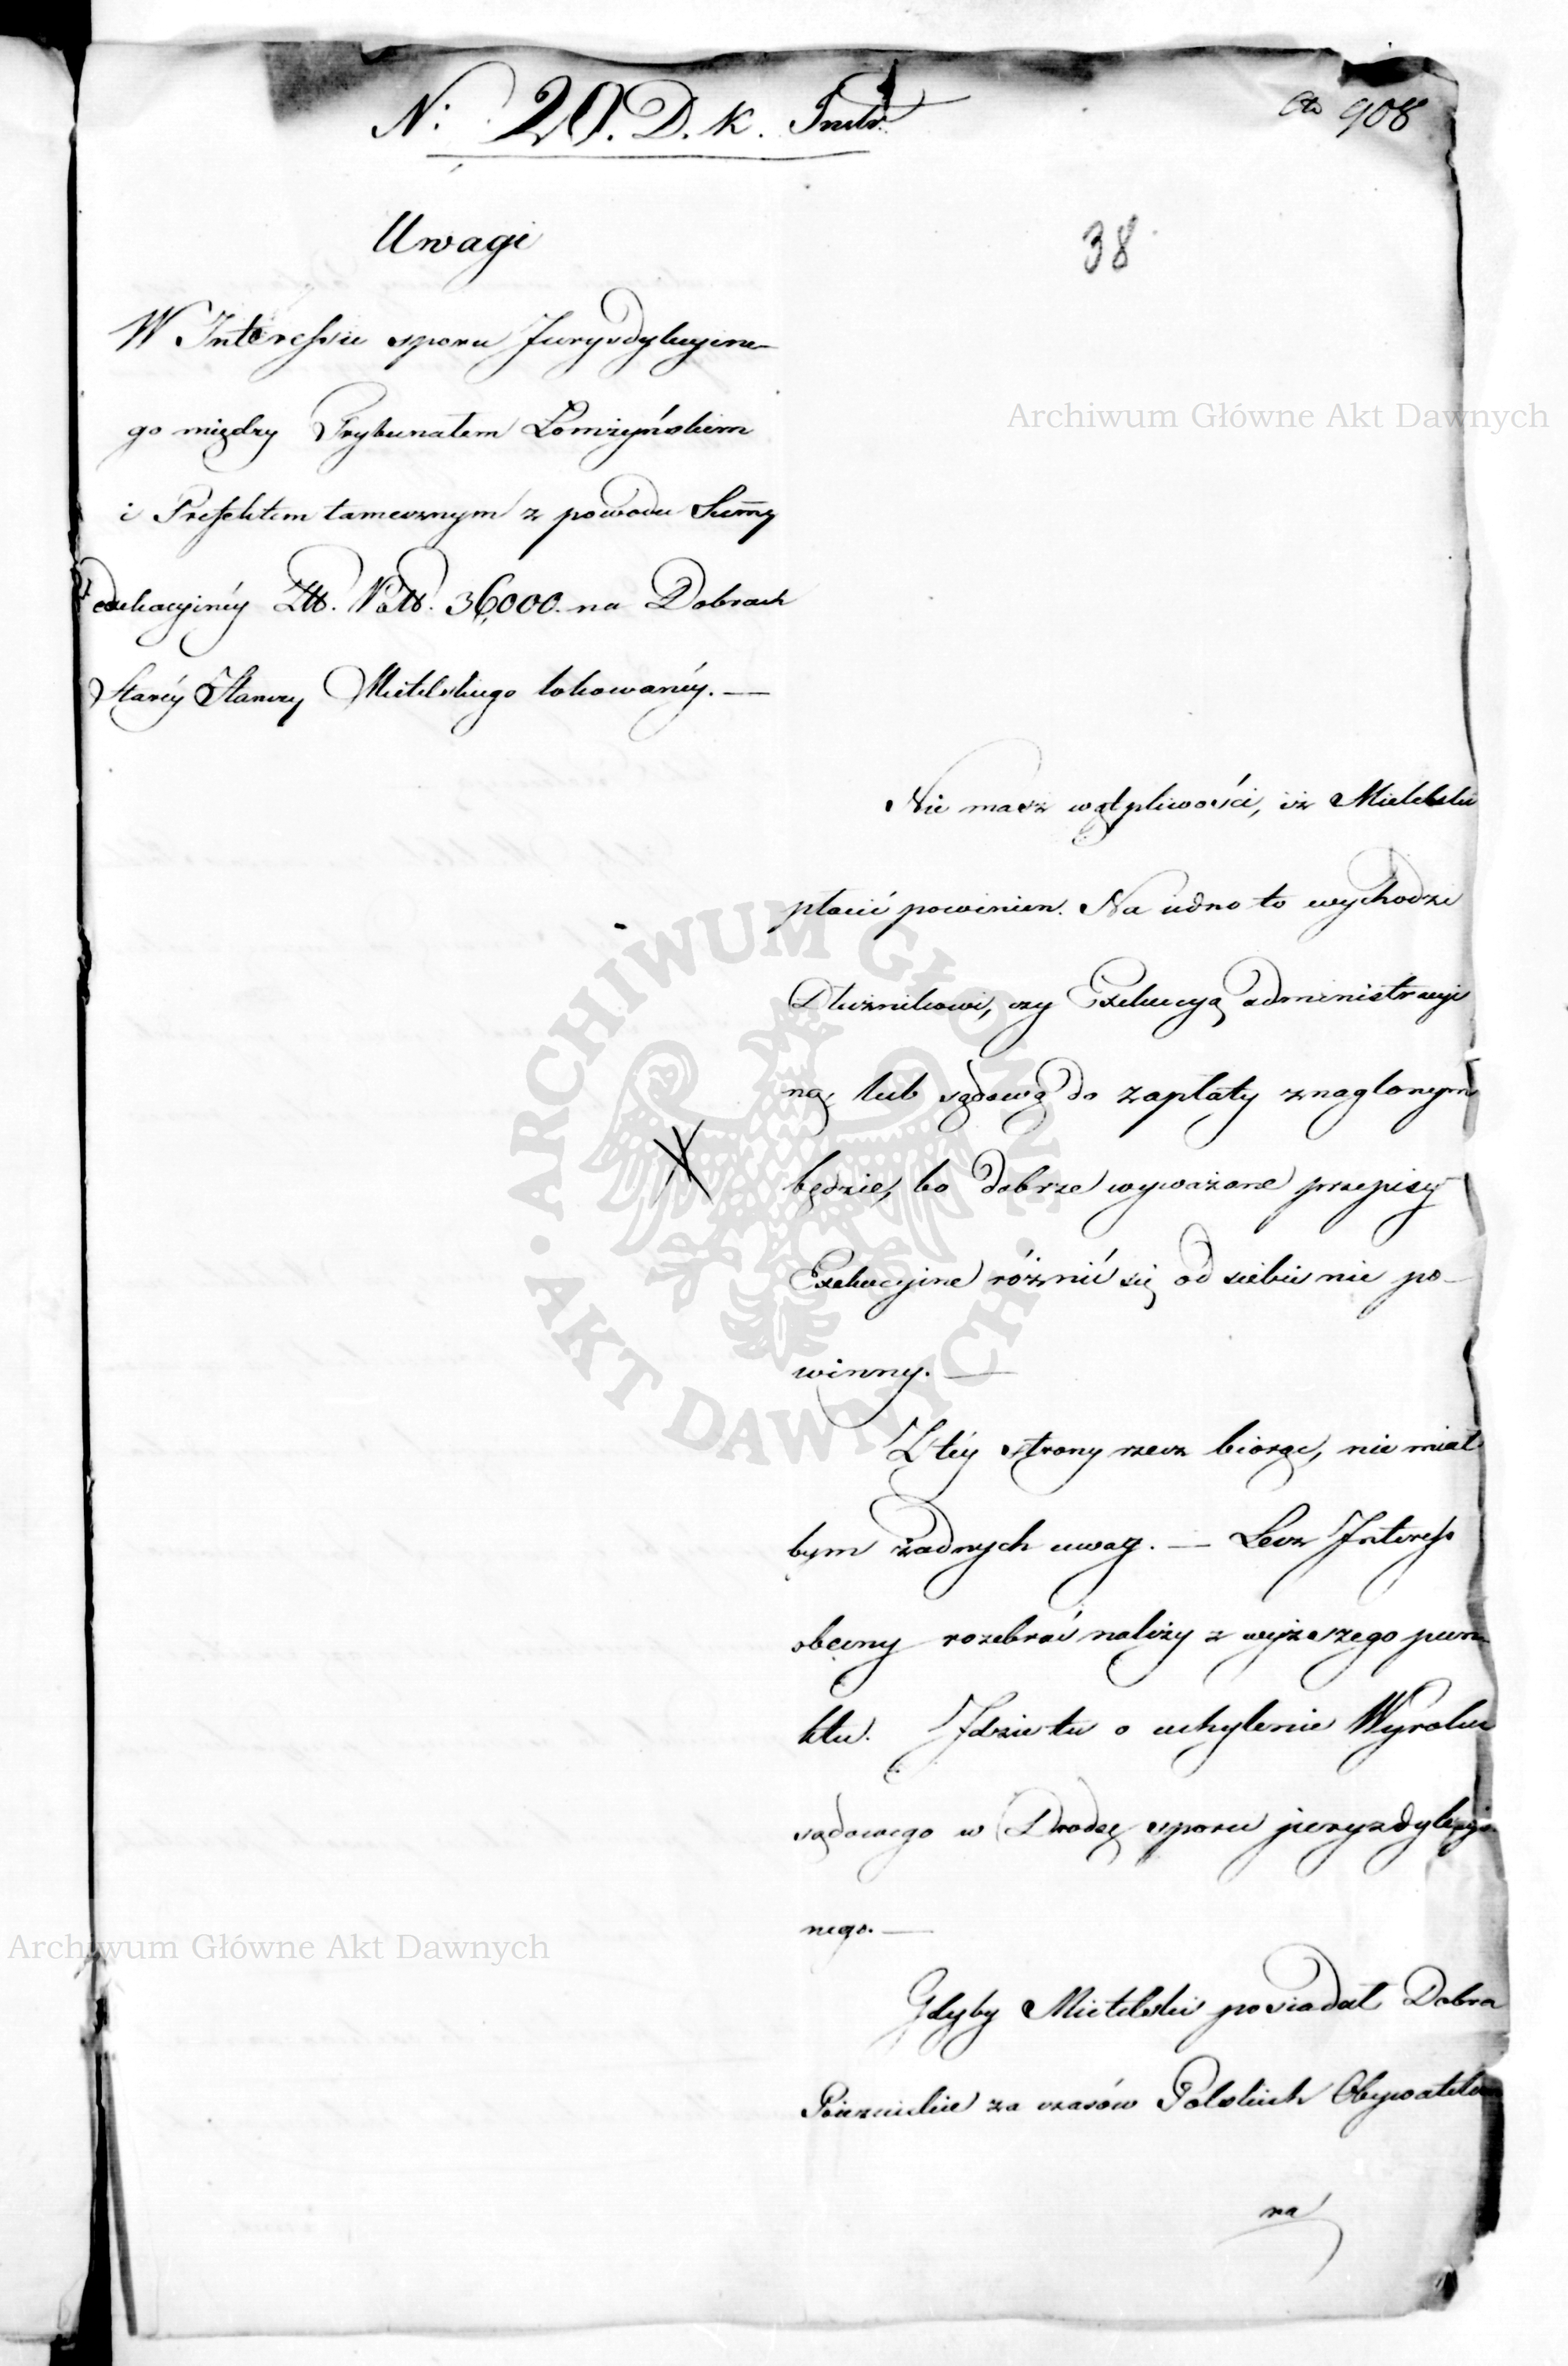 N: 20. D. K. Instr.
ad 908
Uwagi
38
W Interessie sporu Jurysdykcyine-
go między Trybunałem Łomżyńskim
i Prefektem tamecznym z powodu Summy
edukacyinéy Złt. 36,000. na Dobrach
Staréy Mietelskiego lokowanéy. —
Archiwum Główne Akt Dawnych
Nie masz wątpliwości, iż Mietelski
płacić powinien. Na iedno to wychodzi
Dłużnikowi, czy Exekucyą administracyi
ną, lub sądową do zapłaty znaglonym
będzie, bo dobrze wyważone przepisy
Exekucyine różnić się od siebie nie po-
winny. —
Z téy strony rzecz biorąc, nie miał
bym żadnych uwag. — Lecz Interess
obecny rozebrać należy z wyższego pun-
ktu. Idzie tu o uchylenie Wyroku
sądowego w Drodze sporu jurysdykcyi-
nego. —
Gdyby Mietelski posiadał Dobra
za czasów Polskich Obywatelom
na
ARCHIWUM GŁÓWNE • AKT DAWNYCH •
Archiwum Główne Akt Dawnych